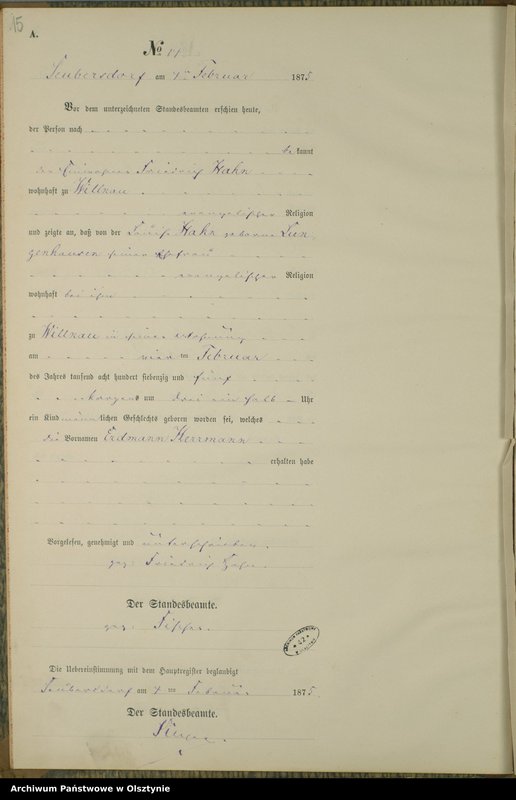 15
A.
No 11
Seubersdorf am 4ten Februar 1875.
Vor dem unterzeichneten Standesbeamten erschien heute,
der Person nach
bekannt
der Friedrich Hahn
wohnhaft zu Willnau
evangelischer Religion
und zeigte an, daß von der Hahn geborene Lan-
genhausen seiner Ehefrau
evangelischer Religion
wohnhaft bei ihm
zu Willnau in seiner Wohnung
am vier ten Februar
des Jahres tausend acht hundert siebenzig und fünf
Morgens um drei ein halb Uhr
ein Kind männlichen Geschlechts geboren worden sei, welches
die Vornamen Erdmann Herrmann
erhalten habe
Vorgelesen, genehmigt und unterschrieben.
gez. Friedrich Hahn.
Der Standesbeamte.
gez.
Die Uebereinstimmung mit dem Hauptregister beglaubigt
Seubersdorf am 4 ten Februar 1875.
Der Standesbeamte.
Archiwum Państwowe w Olsztynie